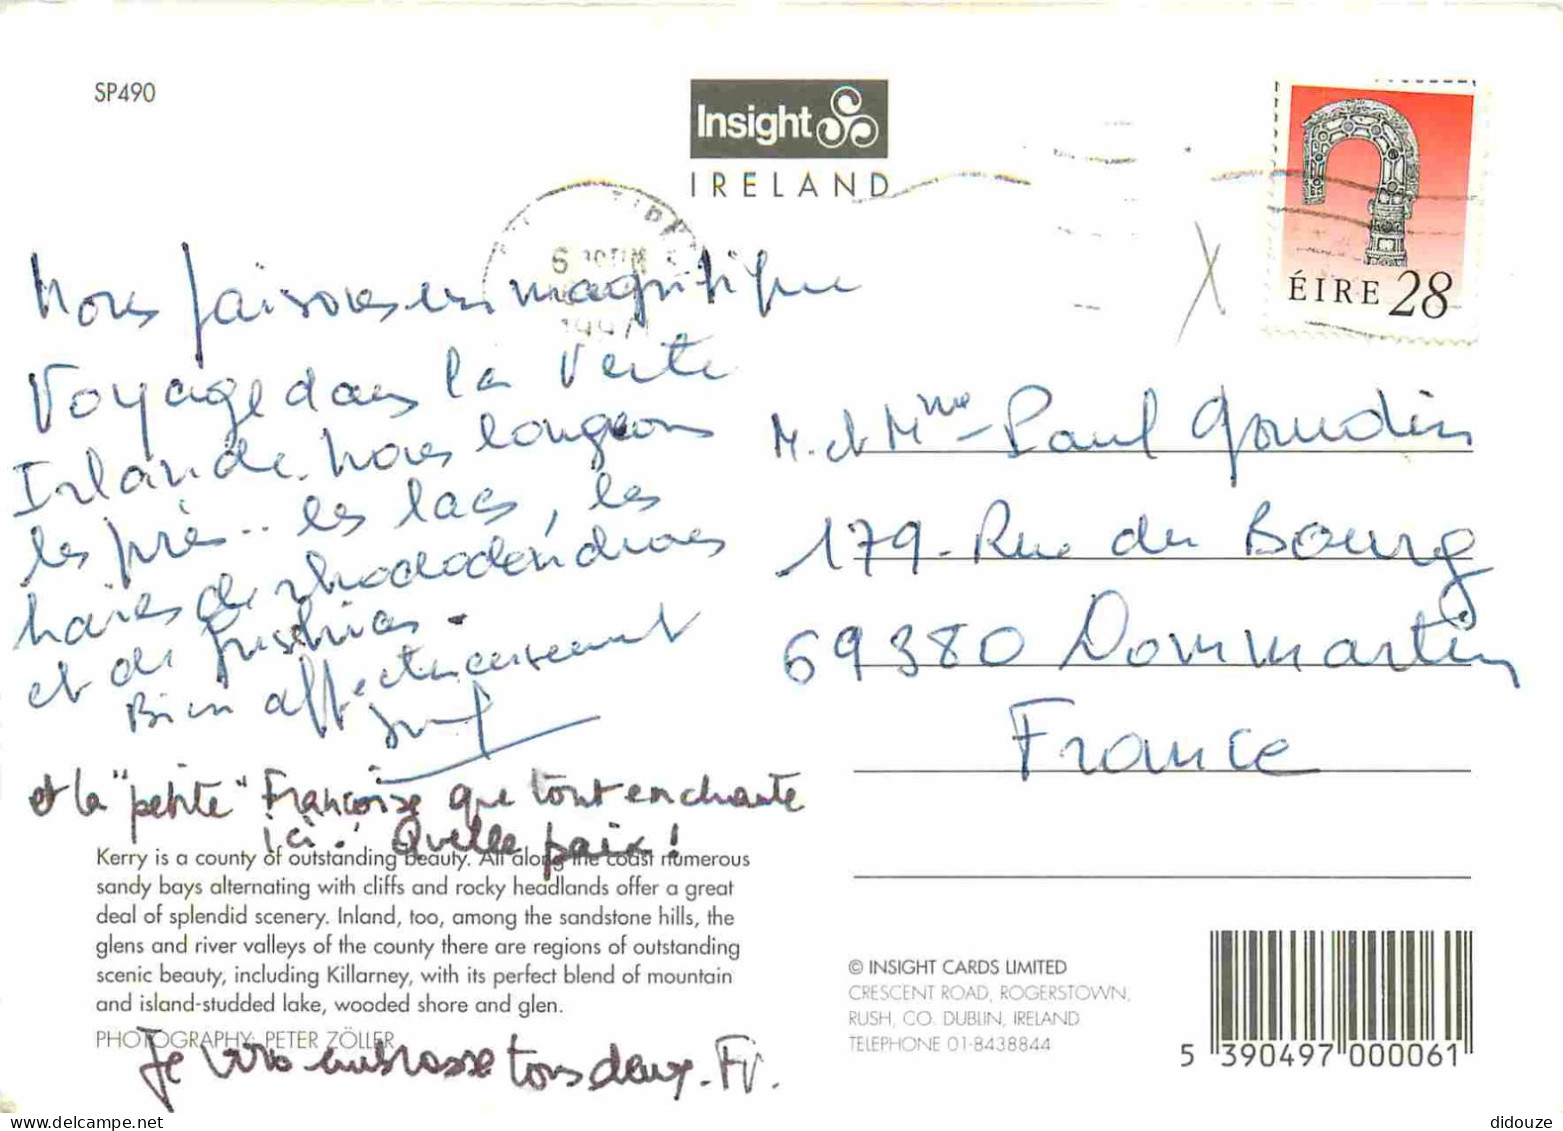 SP490
Insight
IRELAND
ÉIRE 28
6
1997
Nous faisons un magnifique
Voyage dans la Verte
Irlande. Nous longeons
les prés.. les lacs, les
haies de rhododendrons
et de fuschias.
Bien affectueusement
et la "petite" Françoise que tout enchante
ici! Quelle paix!
Kerry is a county of outstanding beauty. All along the coast numerous
sandy bays alternating with cliffs and rocky headlands offer a great
deal of splendid scenery. Inland, too, among the sandstone hills, the
glens and river valleys of the county there are regions of outstanding
scenic beauty, including Killarney, with its perfect blend of mountain
and island-studded lake, wooded shore and glen.
PHOTOGRAPHY: PETER ZÖLLER
Je vous embrasse tous deux. Fr.
M. et Mme Paul Goudin
179. Rue du Bourg
69380 Dommartin
France
© INSIGHT CARDS LIMITED
CRESCENT ROAD, ROGERSTOWN,
RUSH, CO. DUBLIN, IRELAND
TELEPHONE 01-8438844
5 390497 000061
didouze